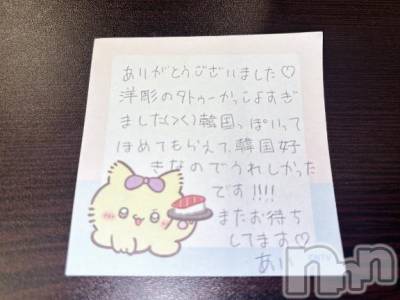 ありがとうございました♡
洋彫のタトゥーかっこよすぎ
ました(>﹏<)韓国っぽいって
ほめてもらえて、韓国好
きなのでうれしかった
です!!!!
またお待ち
してます♡
あい